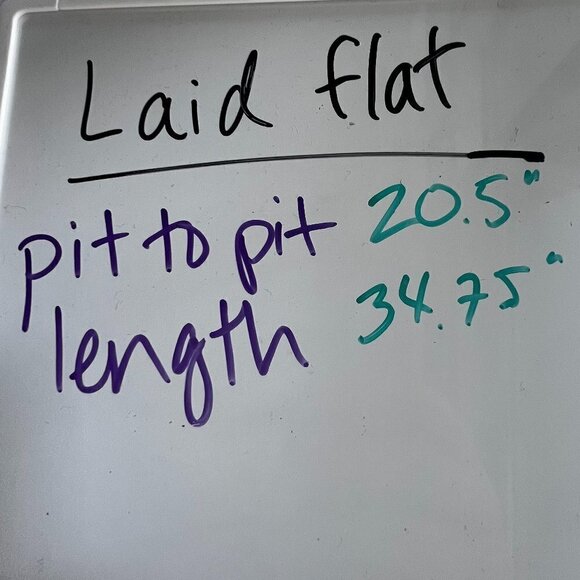 Laid flat
pit to pit 20.5"
length 34.75"